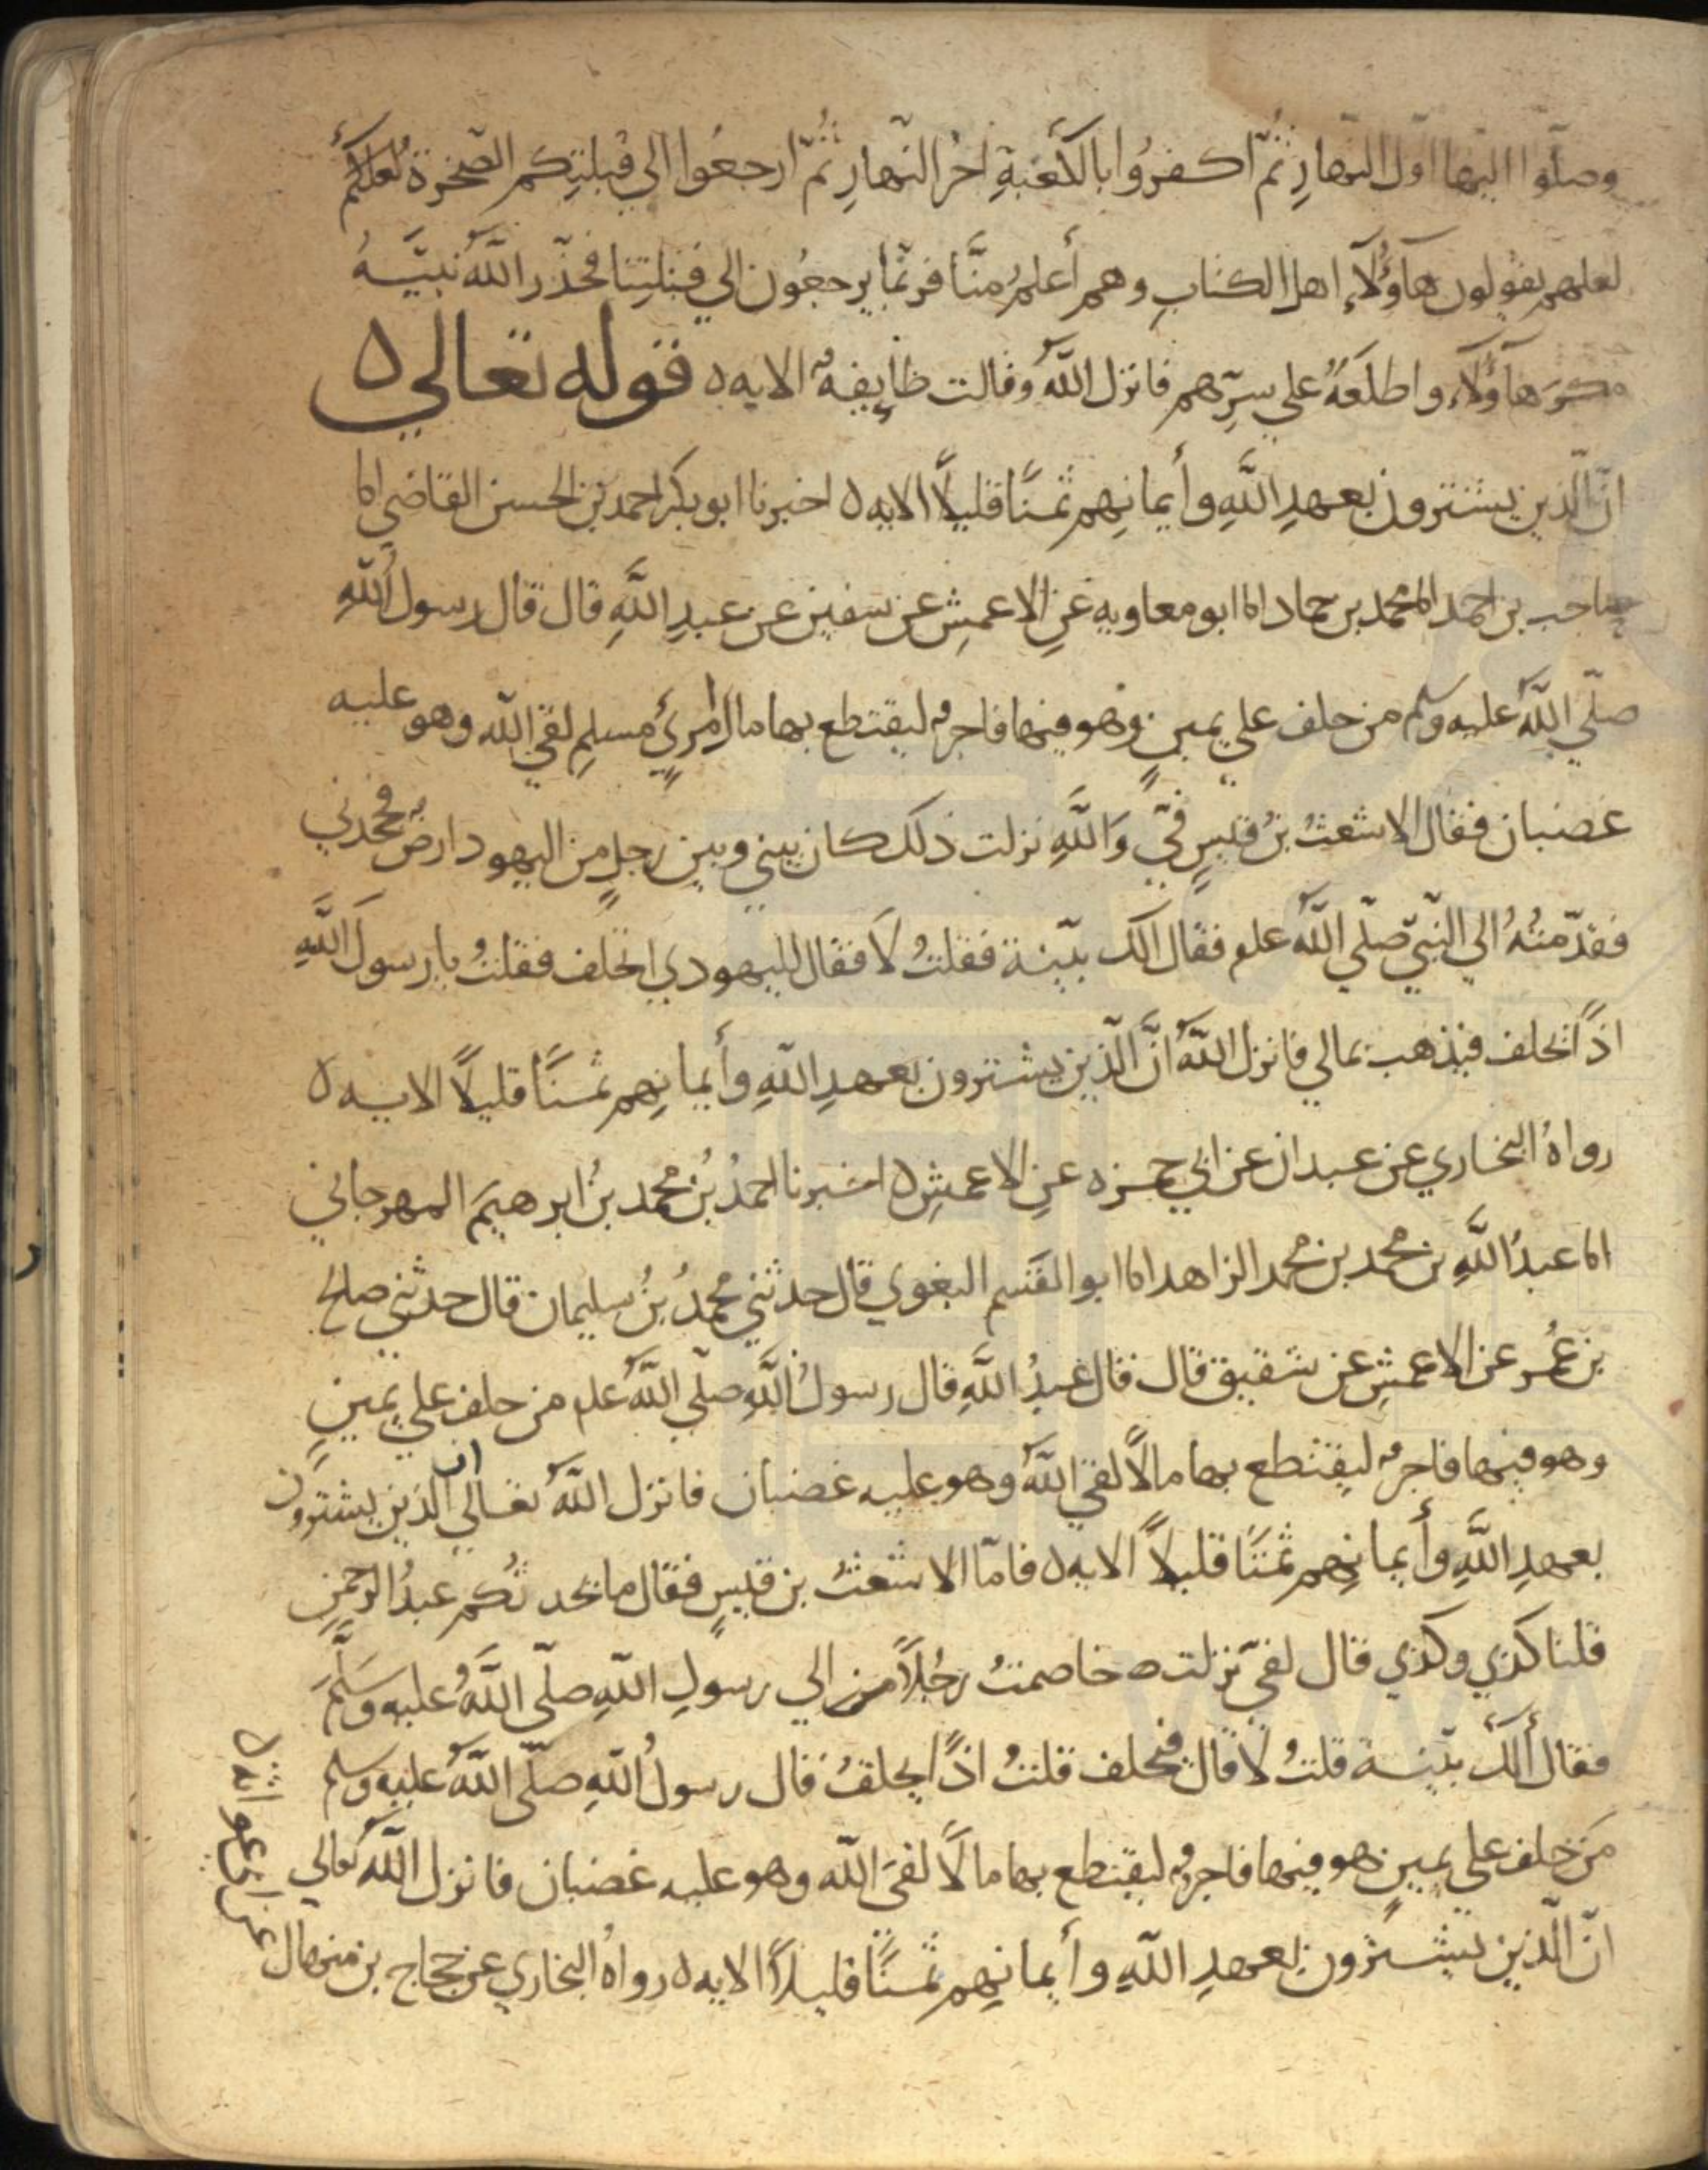 وصلّوا اليها اوّل النهارِ ثُمّ اكفرُوا بالكَعْبةِ اخرَ النّهارِ ثُمّ ارجعُوا الي قبلتِكم الصّخرة لعلكُم
لعلهم يقولون هاَؤُلآءِ اهل الكتابِ وهم أعلمُ منَّا فربّما يرجعُون الي قبلتِنا فحذّر اللَّهُ نبيَّهُ
مكرَ هاَؤُلآء واطلَعَهُ علي سِرِّهم فانزل اللَّهُ وقالت طايفةٌ الايه ه قوله تعالي ه
انّ الّذين يشترون بعهدِ اللَّهِ وأيمانِهم ثمنًا قليلاً الايه ه اخبرنا ابو بكر احمد بن الحسن القاضي انا
حاجب بن احمد انا محمد بن حماد انا ابو معاويه عَنِ الاعمشِ عن سفين عن عبدِ اللَّهِ قال قال رسول اللهِ
صلّي اللَّهُ عليه وسلم من حلف علي يمينٍ وهو فيها فاجرٌ ليقتطع بها مال امرئٍ مسلمٍ لقي اللّه وهو عليه
غضبان فقال الاشعثُ بنُ قيسٍ فيَّ وَاللَّهِ نزلت ذلك كان بيني وبين رجلٍ من اليهود ارضٌ فجحدني
فقدّمتُهُ الي النّبيّ صلّي اللَّهُ علم فقال الك بيّنة فقلتُ لاَ فقال لليهودي احلف فقلتُ يا رسولَ اللَّهِ
اذًا يحلف فيذهب بمالي فانزل اللَّهُ انَّ الّذين يشترون بعهدِ اللّهِ وأيمانِهم ثمنًا قليلاً الايه ه
رواهُ البخاري عن عبدان عن ابي حمزه عنِ الاعمشِ ه اخبرنا احمدُ بنُ محمد بنُ ابرهيمَ المهرجاني
انا عبدُ اللَّهِ بن محمد بن محمد الزاهد انا ابو القسم البغوي قال حدثني محمدُ بنُ سليمان قال حدثني صالح
بن عُمر عن الاعمشِ عن شقيق قال قال عبدُ اللَّهِ قال رسولُ اللَّهِ صلّي اللَّهُ علم من حلف علي يمينٍ
وهو فيها فاجرٌ ليقتطع بها مالاً لقي اللَّهَ وهو عليه غضبان فانزل اللَّهُ تعالي ان الذين يشترون
بعهدِ اللَّهِ وأيمانِهم ثمنًا قليلاً الايه ه فامّا الاشعثُ بن قيسٍ فقال ما يحدثُكم عبدُ الرحمنِ
قلنا كذي وكذي قال لفيَّ نزلت ه خاصمتُ رجُلاً من الي رسولِ اللّهِ صلّي اللَّهُ عليه وَسَلّمَ
فقال ألكَ بيّنة قلتُ لا قال فيحلف قلتُ اذًا يحلفُ قال رسولُ اللّهِ صلّي اللَّهُ عليه وسلم
مَن حلف علي يمينٍ هو فيها فاجرٌ ليقتطع بها مالاً لقيَ اللّه وهو عليه غضبان فانزل اللَّهُ تعالي
انّ الّذين يشترون بعهدِ اللّهِ وأيمانِهم ثمنًا قليلاً الايه ه رواهُ البخاري عن حجاج بن منهال